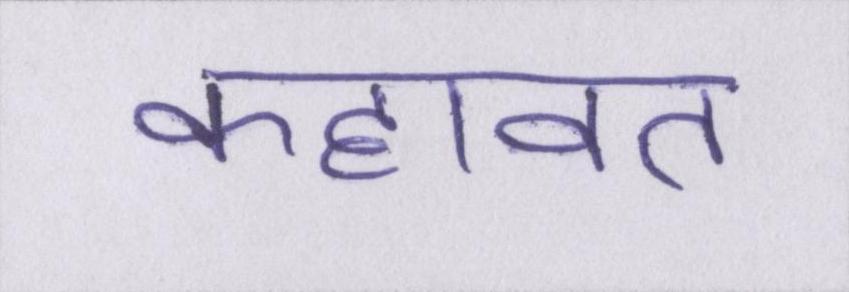 कहावत